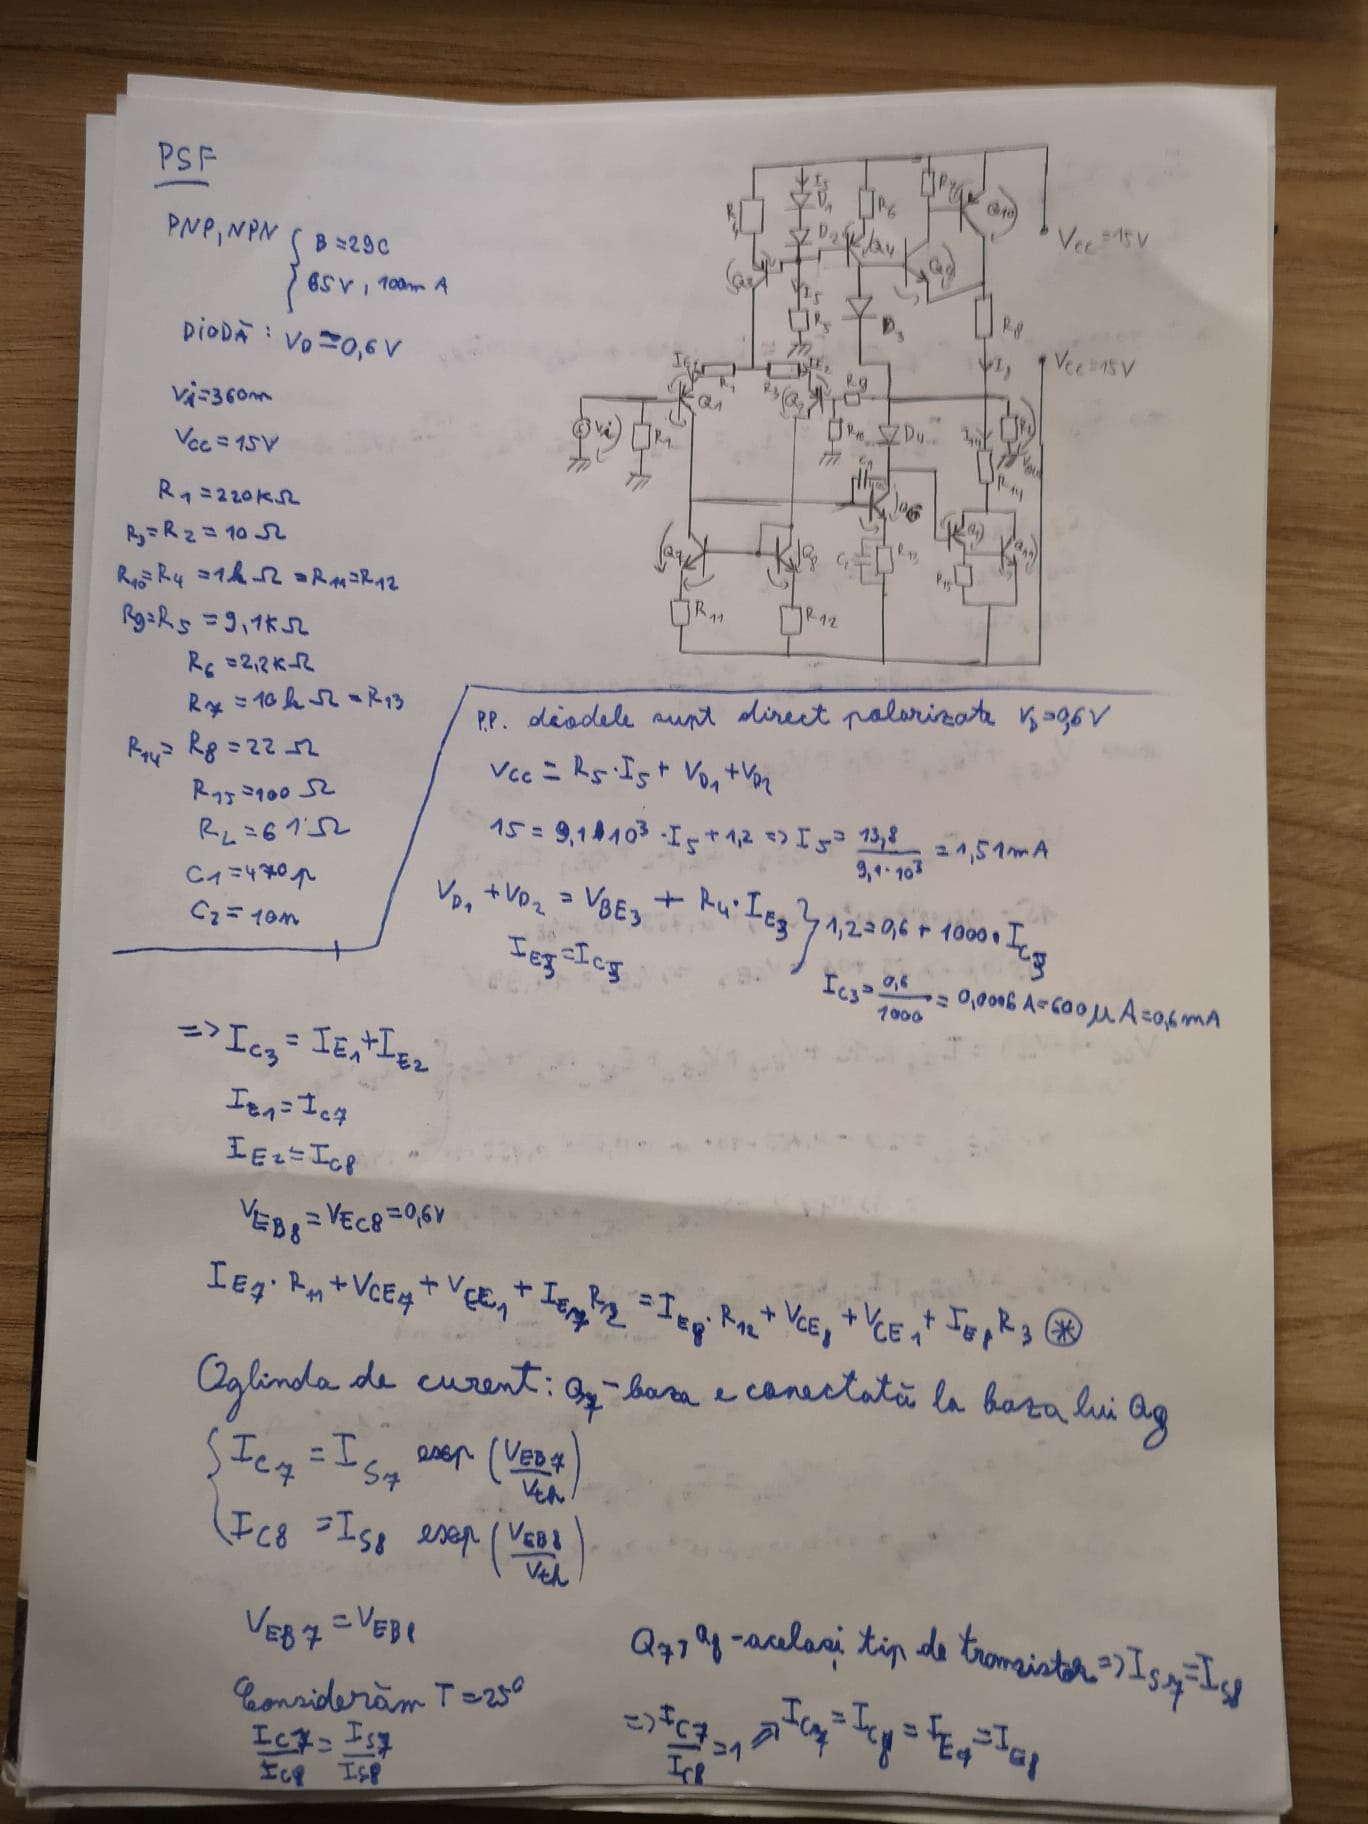 PSF
PNP, NPN { B = 290
65V, 100m A
DIODĂ : VD ≃ 0,6 V
Vi = 360m
VCC = 15V
R1 = 220KΩ
R3 = R2 = 10 Ω
R10 = R4 = 1kΩ = R11 = R12
R9 = R5 = 9,1KΩ
R6 = 2,2KΩ
R7 = 10kΩ = R13
R14 = R8 = 22 Ω
R15 = 100 Ω
RL = 61Ω
C1 = 470p
C2 = 10n
R4
I5
D1
D2
R6
R7
Q10
VCC = 15V
Q3
Q4
Q9
I5
R5
D3
R8
VCC = 15V
IE1
IE2
R3
Q1
Q2
R9
I8
Vi
R1
R10
D4
RL
R14
C1
Q7
Q8
C2
R13
Q11
R15
R11
R12
P.P. diodele sunt direct polarizate VD = 0,6V
VCC = R5 · I5 + VD1 + VD2
15 = 9,1 · 10³ · I5 + 1,2 => I5 = 13,8 / 9,1 · 10³ = 1,51mA
VD1 + VD2 = VBE3 + R4 · IE3 } 1,2 = 0,6 + 1000 · IC3
IE3 = IC3
IC3 = 0,6 / 1000 = 0,0006 A = 600 μA = 0,6 mA
=> IC3 = IE1 + IE2
IE1 = IC7
IE2 = IC8
VEB8 = VEC8 = 0,6V
IE7 · R11 + VCE7 + VCE1 + IE7 R2 = IE8 · R12 + VCE8 + VCE1 + IE8 R3 (*)
Oglinda de curent: Q7 - baza e conectată la baza lui Q8
{ IC7 = IS7 exp (VEB7 / Vth)
IC8 = IS8 exp (VEB8 / Vth)
VEB7 = VEB8
Q7, Q8 - același tip de tranzistor => IS7 = IS8
Considerăm T = 25°
IC7 / IC8 = IS7 / IS8
=> IC7 / IC8 = 1 => IC7 = IC8 = IE7 = IE8